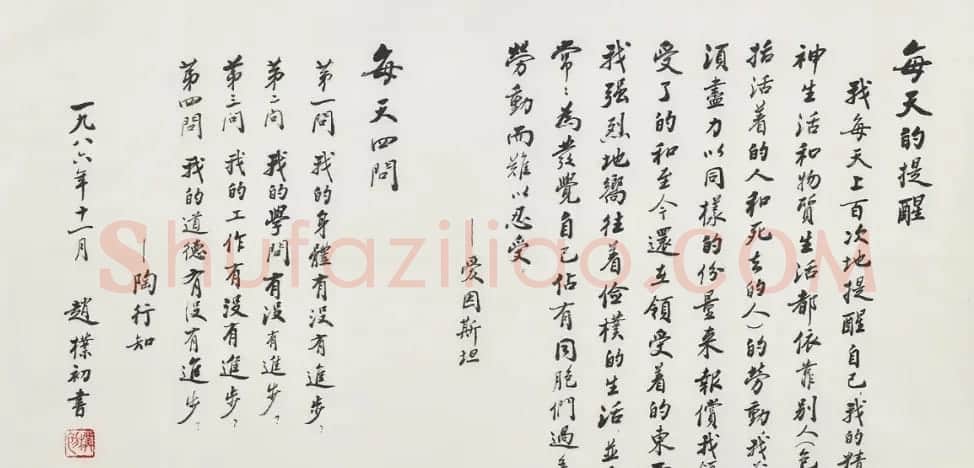 每天的提醒
我每天上百次地提醒自己，我的精
神生活和物質生活都依靠别人(包
括活着的人和死去的人)的勞動，我
須盡力以同樣的份量来報償我領
受了的和至今還在領受着的東西
我强烈地嚮往着俭樸的生活，並
常：為發覺自己佔有同胞們過多
勞動而難以忍受。
—爱因斯坦
每天四問
第一問 我的身體有没有進步？
第二问 我的學問有没有進步？
第三问 我的工作有没有進步？
第四問 我的道德有没有進步？
—陶行知
一九八六年十一月 趙樸初書
Shufaziliao.COM